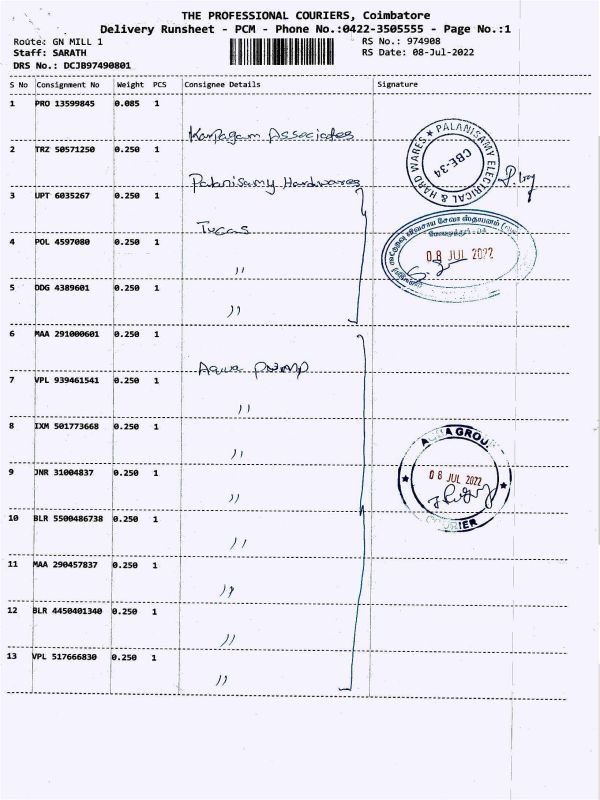 THE PROFESSIONAL COURIERS, Coimbatore
Delivery Runsheet - PCM - Phone No.:0422-3505555 - Page No.:1
Route: GN MILL 1 RS No.: 974908
Staff: SARATH RS Date: 08-Jul-2022
DRS No.: DCJB97490801
S No Consignment No Weight PCS Consignee Details Signature
1 PRO 13599845 0.085 1
Karpagam Associates
2 TRZ 50571250 0.250 1
Palanisamy Hardwares
PALANISAMY ELECTRICAL & HARD WARES ★
CBE-34
3 UPT 6035267 0.250 1
Tucas
4 POL 4597080 0.250 1
"
08 JUL 2022
5 DDG 4389601 0.250 1
"
6 MAA 291000601 0.250 1
Aqua pump
7 VPL 939461541 0.250 1
"
8 IXM 501773668 0.250 1
"
AQUA GROUP
9 JNR 31004837 0.250 1
"
08 JUL 2022
10 BLR 5500486738 0.250 1
"
COURIER
11 MAA 290457837 0.250 1
"
12 BLR 4450401340 0.250 1
"
13 VPL 517666830 0.250 1
"